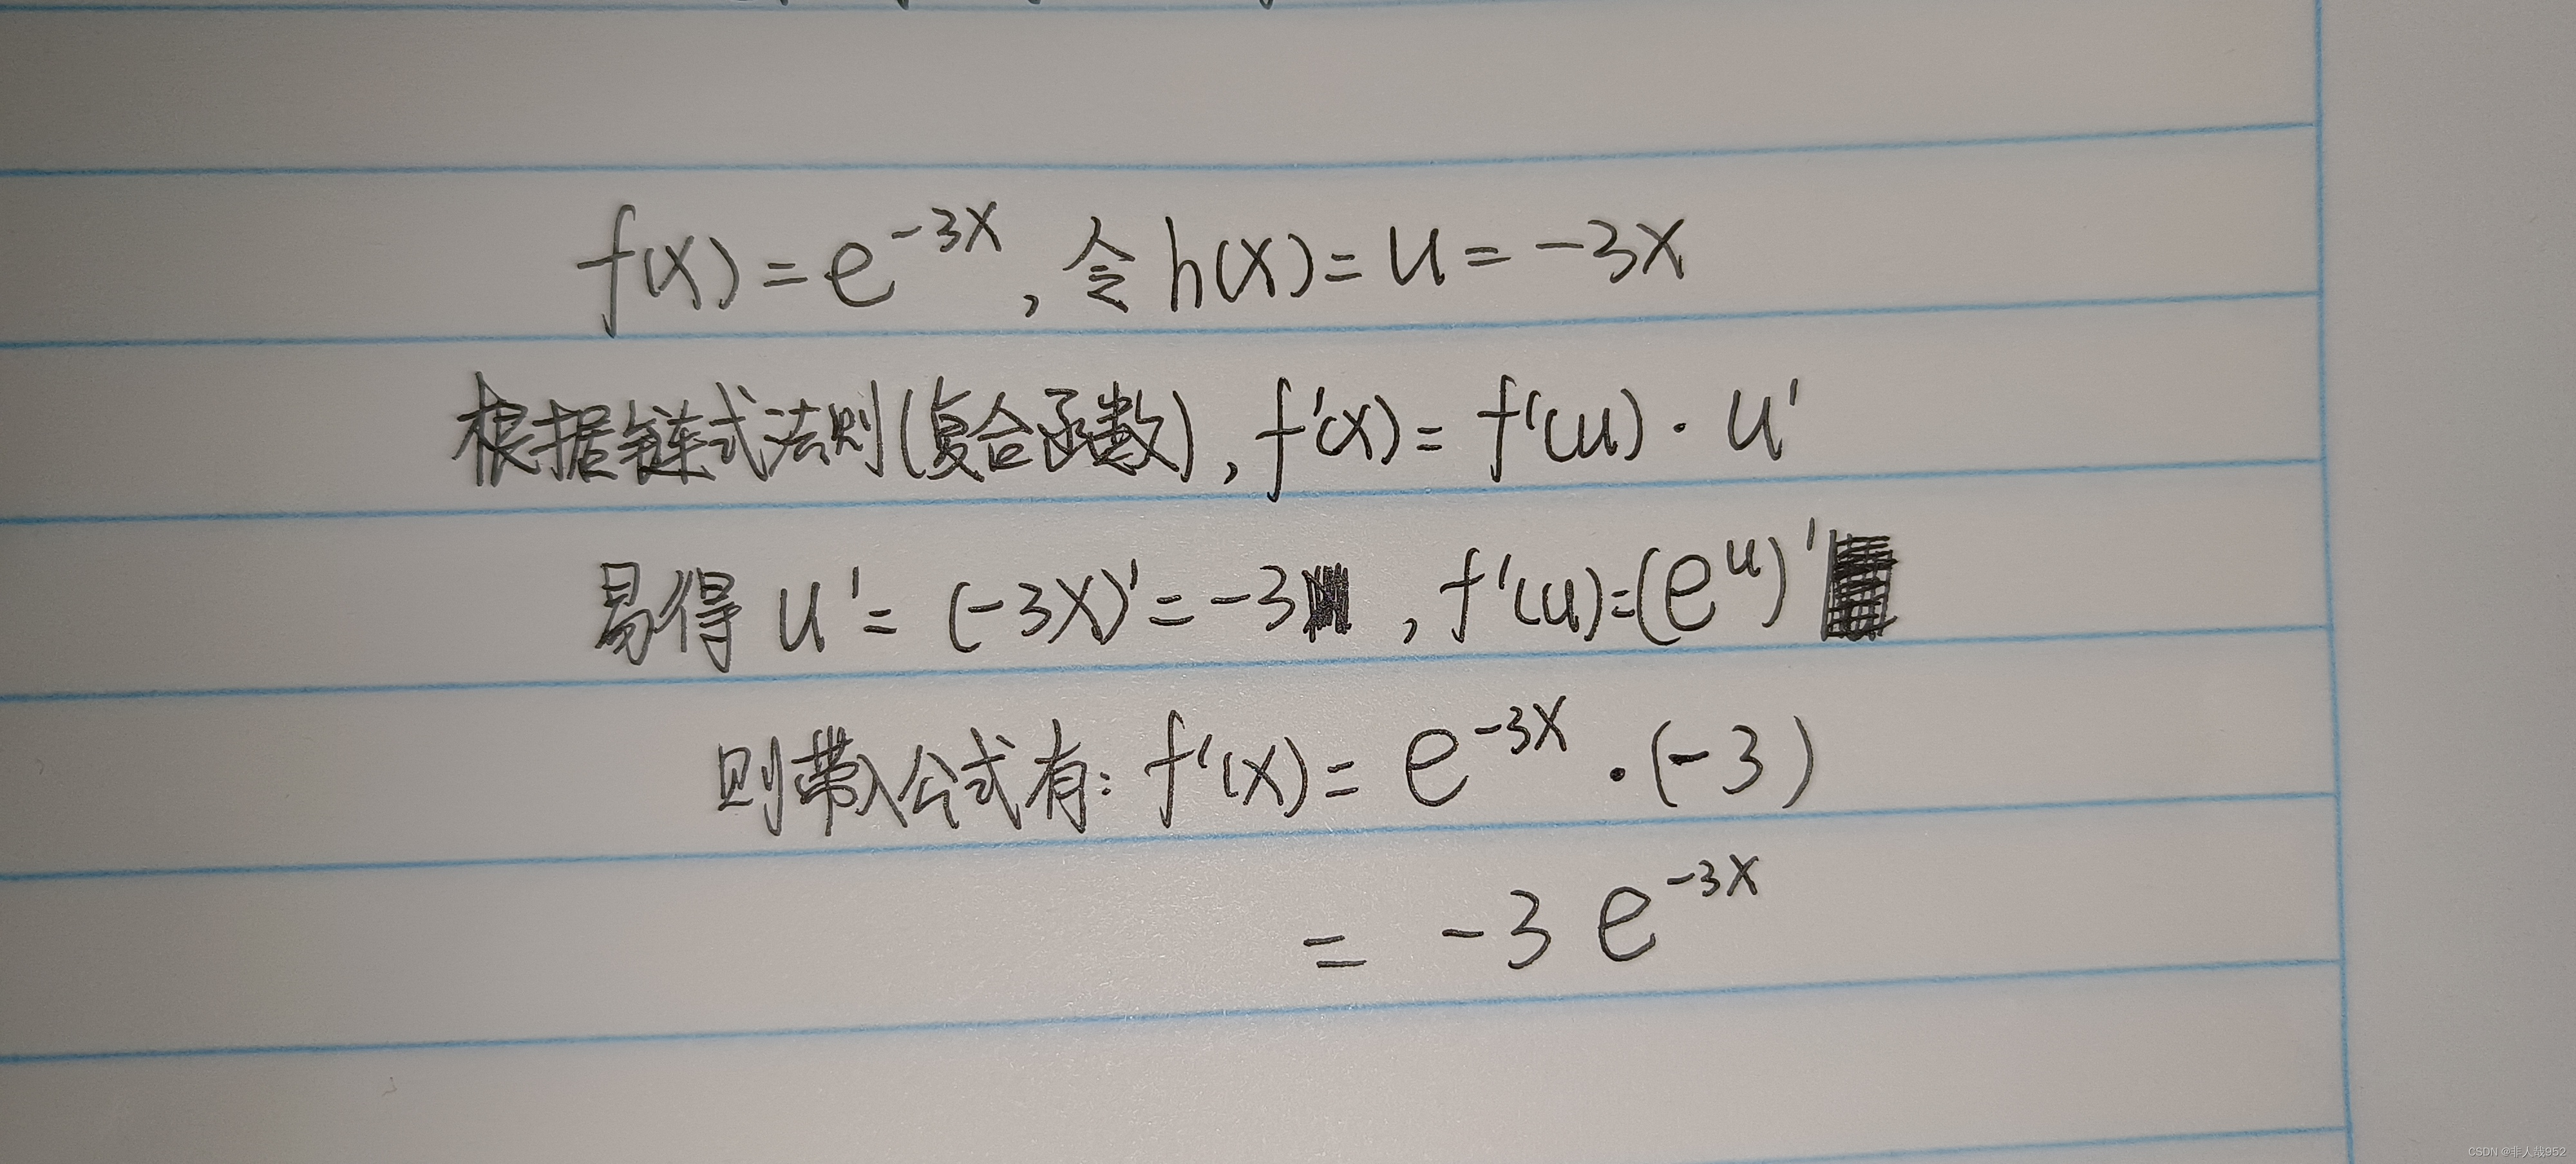 f(x)=e^{-3x},令h(x)=u=-3x
根据链式法则(复合函数),f'(x)=f'(u)·u'
易得 u'=(-3x)'=-3 ,f'(u)=(e^u)'
则带入公式有:f'(x)=e^{-3x}·(-3)
=-3e^{-3x}
CSDN @非人哉952